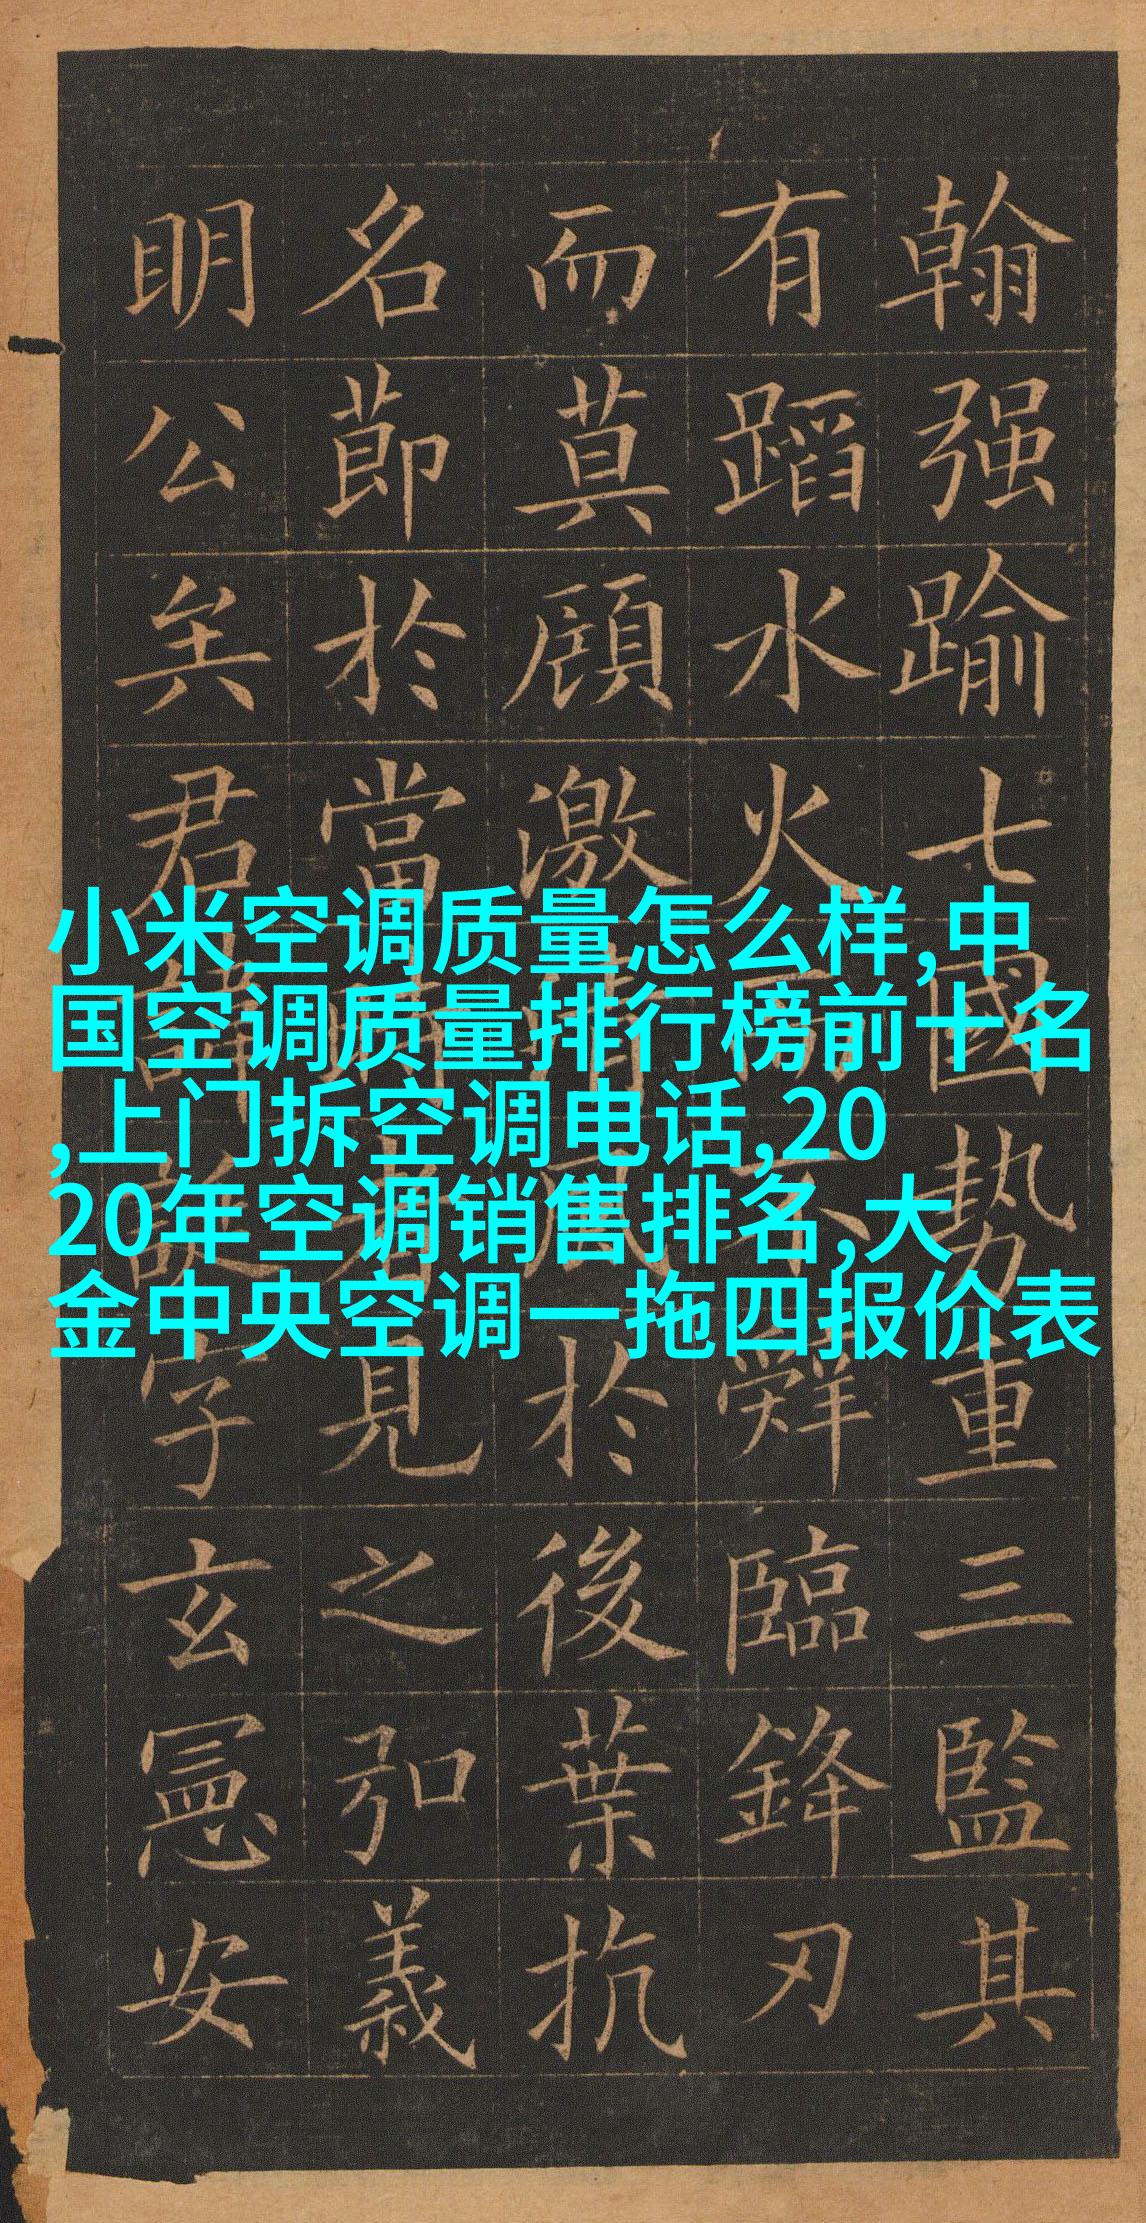 翰强踰七國勢重三監其
有蹈水火而不辭臨鋒刃
而莫顧激清風於後葉抗
名節於當時者見之弘義
明公矣君諱誕字玄憲安
小米空调质量怎么样,中
国空调质量排行榜前十名
,上门拆空调电话,20
20年空调销售排名,大
金中央空调一拖四报价表